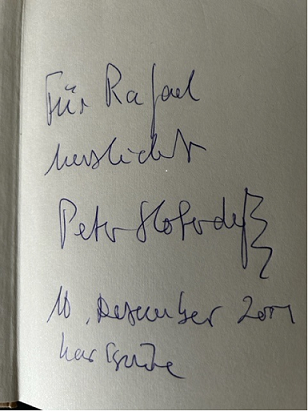 Für Rafael
herzlichst
Peter Sloterdijk
10. Dezember 2011
Karlsruhe